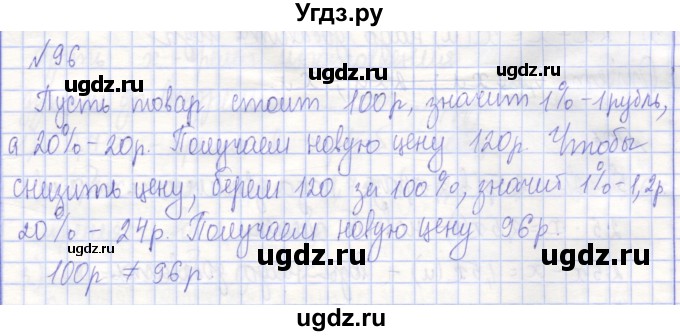 Угдз.ру
№96
ugdz.ru ugdz.ru
Пусть товар стоит 100р, значит 1% – 1 рубль,
а 20% – 20р. Получаем новую цену 120р. Чтобы
снизить цену, берем 120 за 100%, значит 1% – 1,2р
20% – 24р. Получаем новую цену 96р.
100р ≠ 96р
ugdz.ru ugdz.ru
ugdz.ru ugdz.ru
ugdz.ru ugdz.ru
ugdz.ru